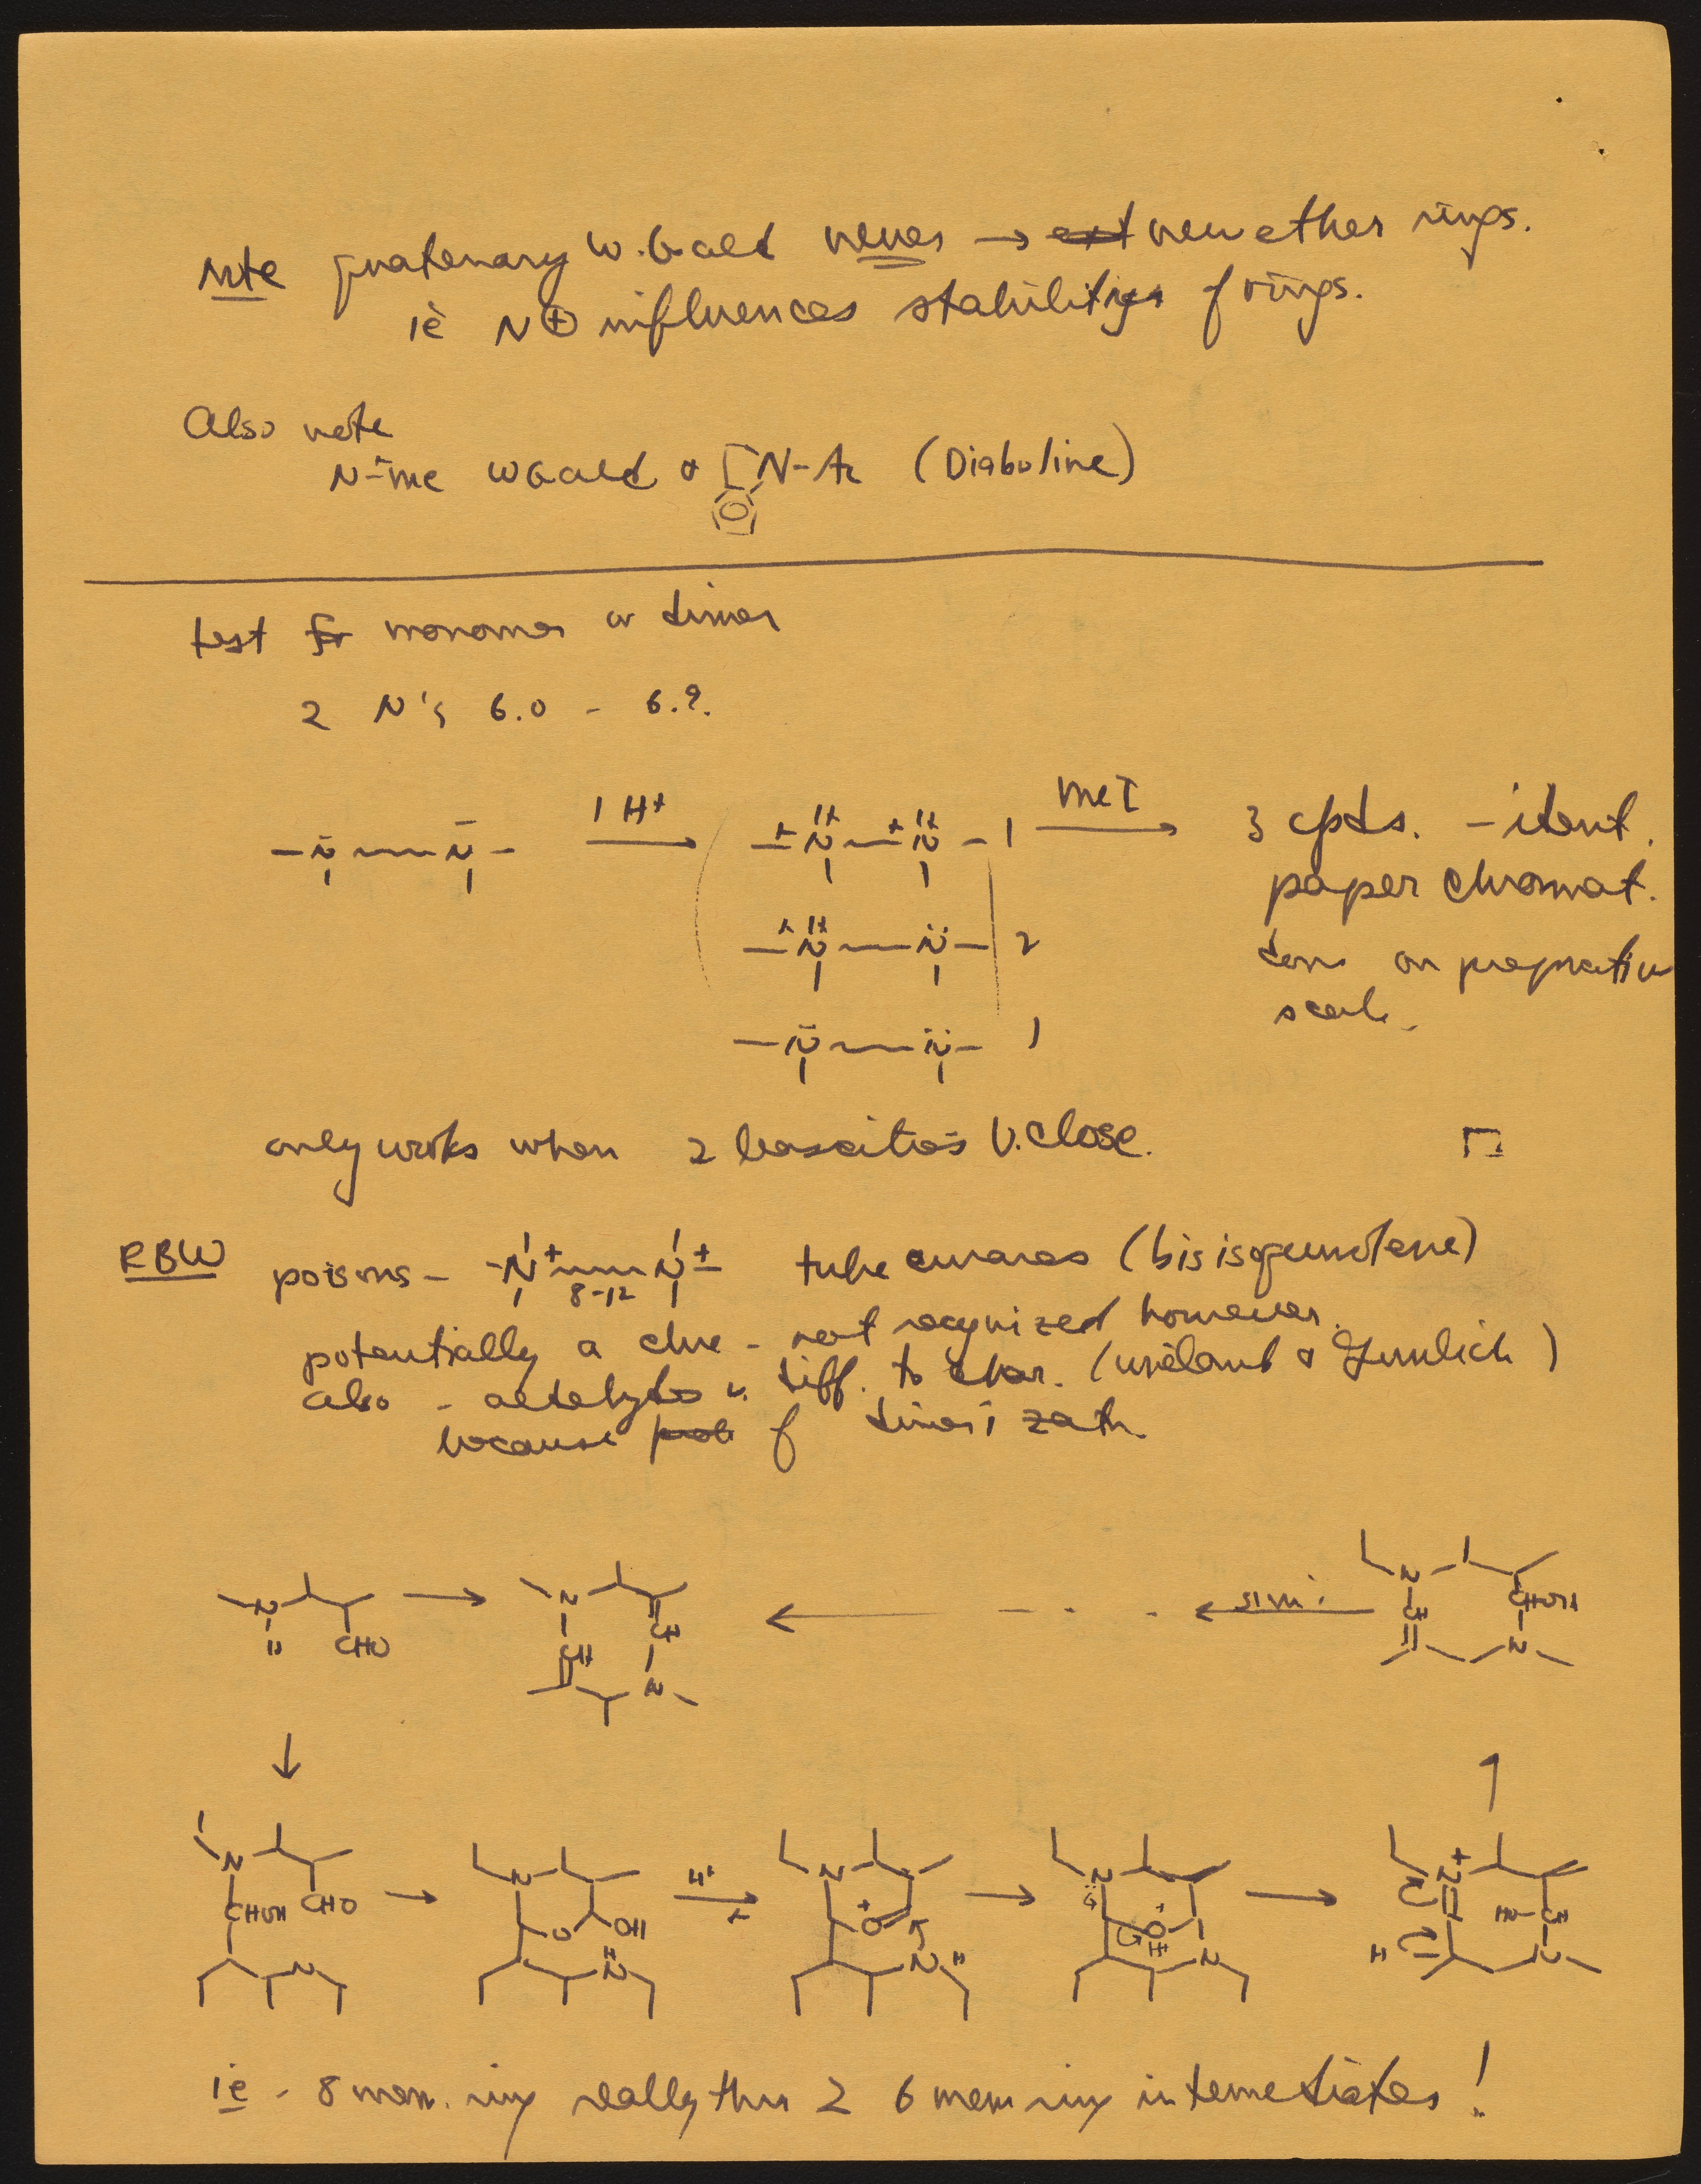 Note quaternary W. Gald never → ext new ether rings.
ie N⊕ influences stabilities of rings.
Also note
N-me WGald & [N-Ac (Diaboline)
test for monomer or dimer
2 N's 6.0 - 6.?
-N---N- 1 H+ +N---+N- 1 MeI 3 cpds. - ident.
paper chromat.
+N---N- 2
done on preparative
scale.
-N---N- 1
only works when 2 basicities v. close.
RBW poisons - -N+---N+- tube curares (bisisoquinolene)
8-12
potentially a clue - not recognized however.
also - aldehydes v. diff. to char. (Wieland & Gumlich)
because prob of dimerizatn.
N H CHO → N CH CH N ← - - - ← simi. N CH CHOH N
↓ ↑
N CHOH CHO N → N O OH H N H+ N + O N H → N O + H N → N + H HO-CH N
ie - 8 mem. ring really thru 2 6 mem ring intermediates!